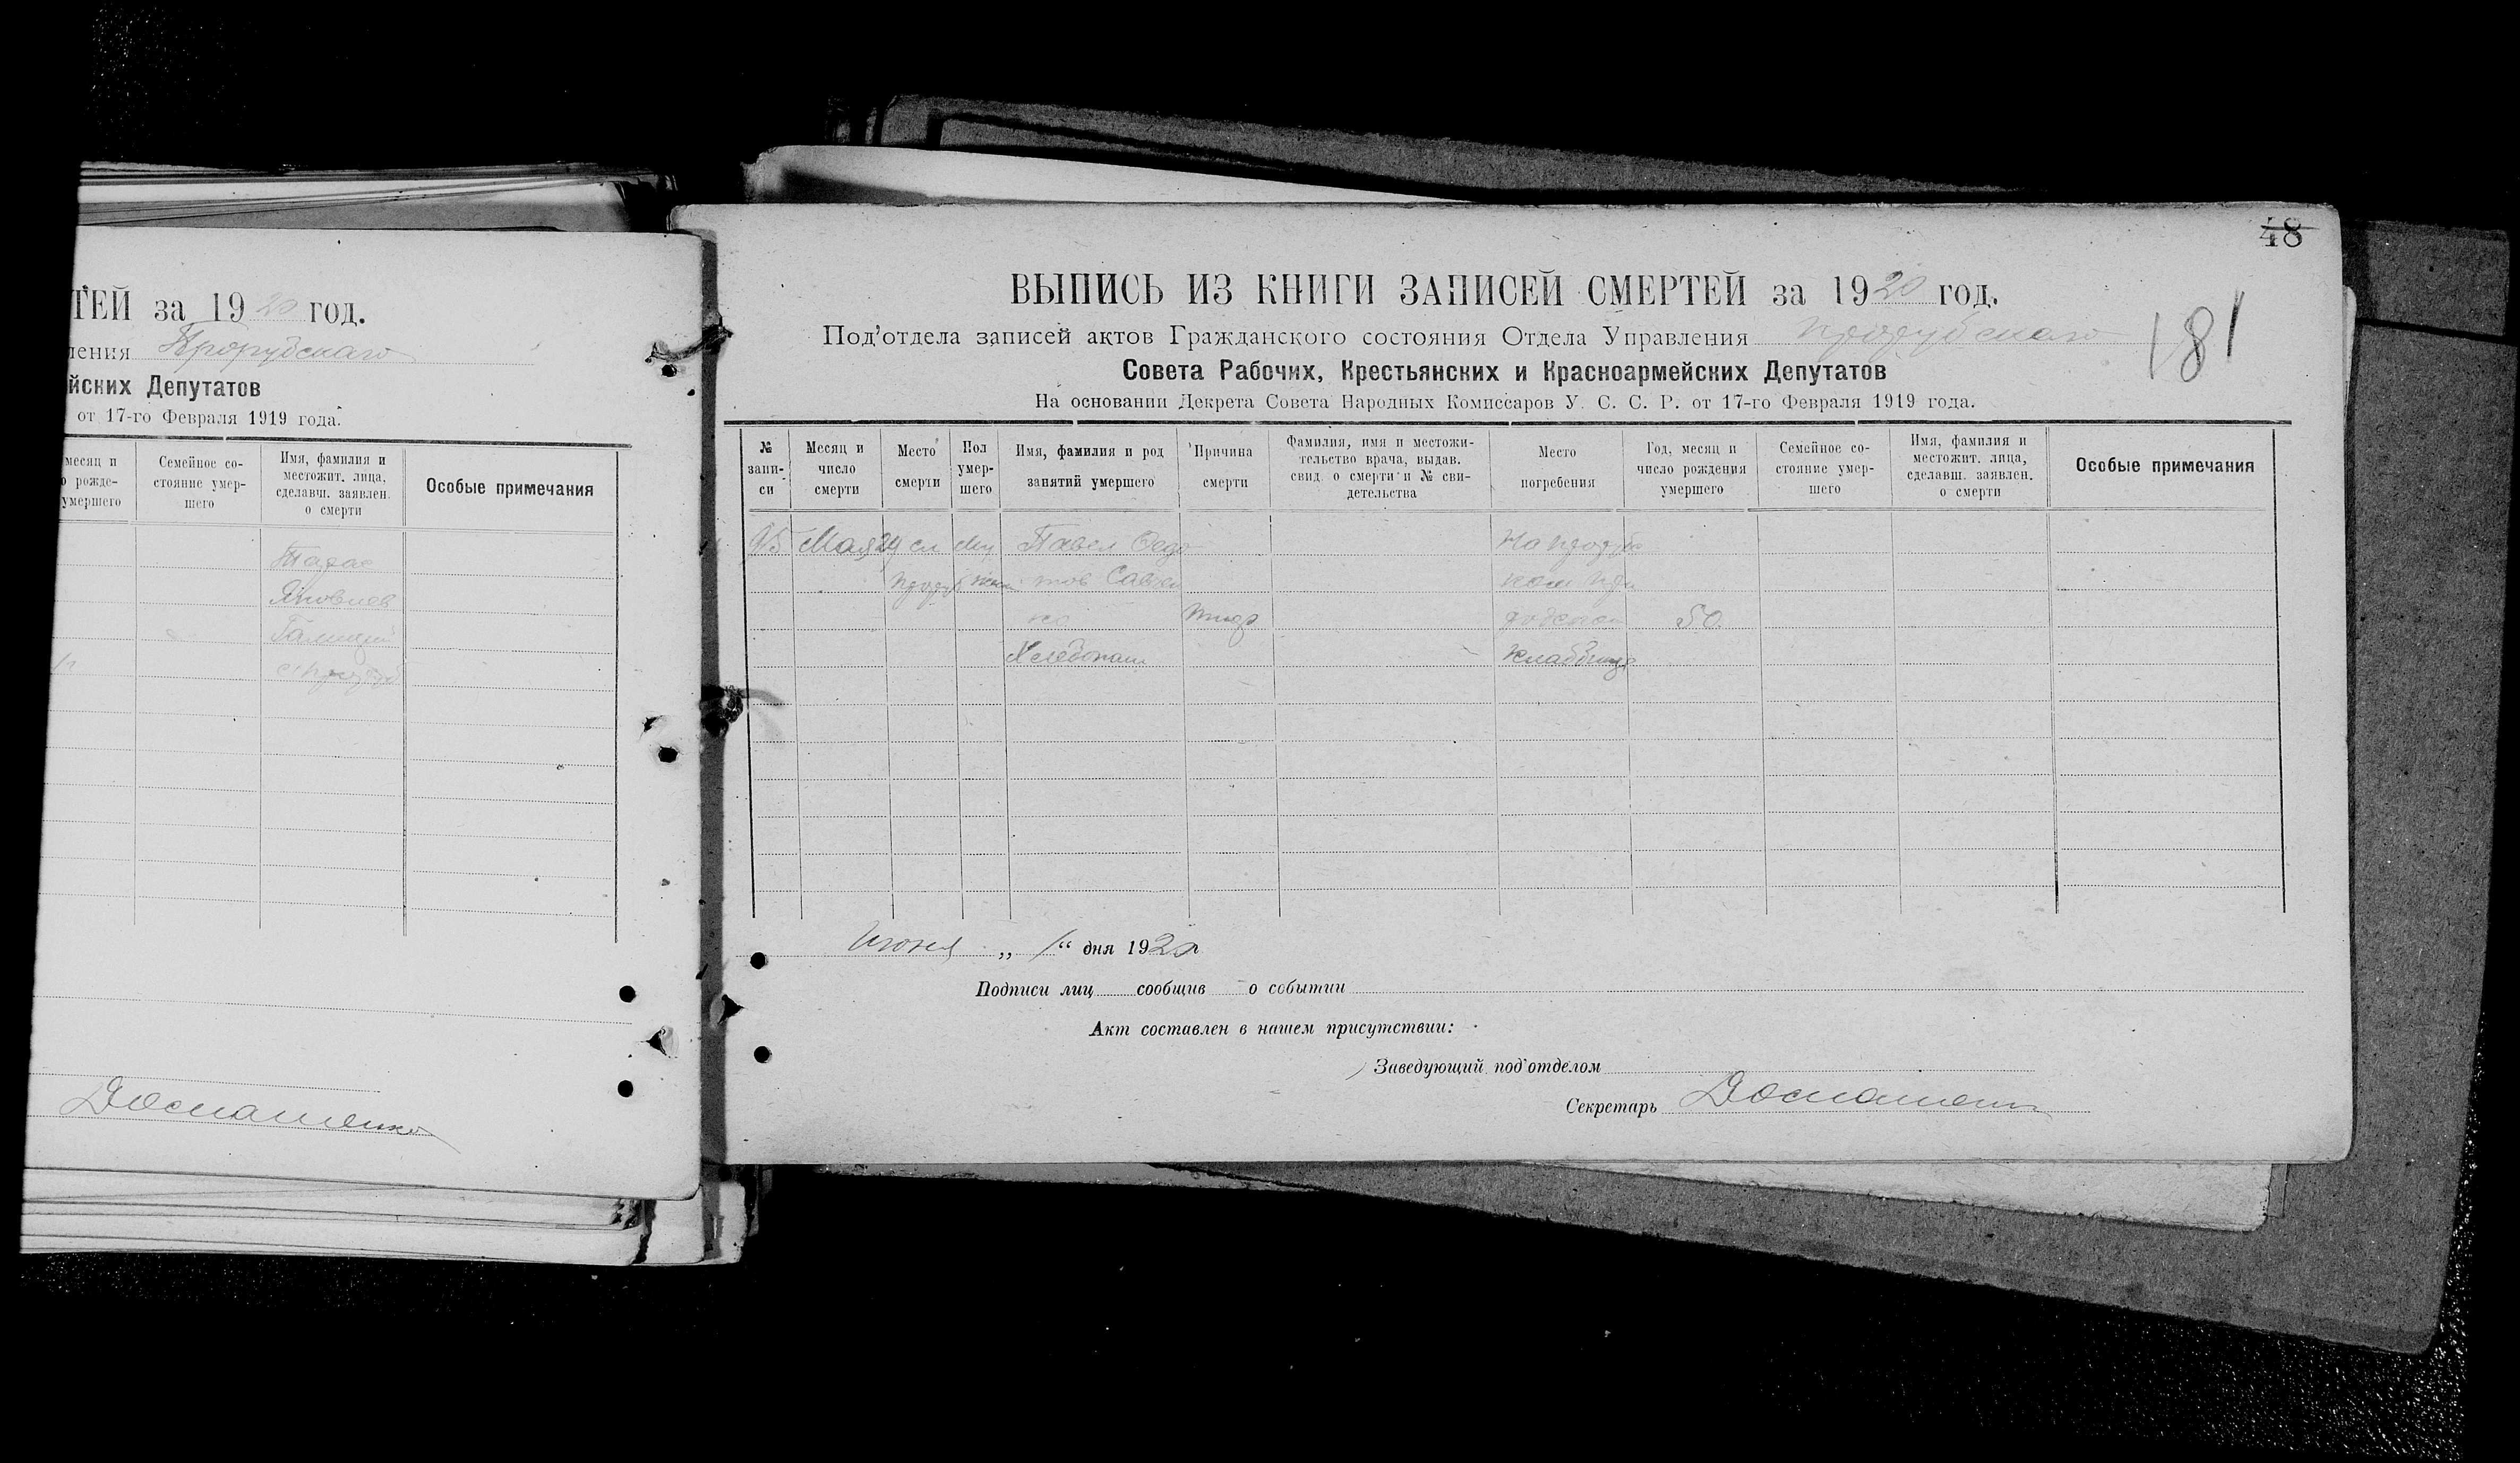 ТЕЙ за 1920 год.
ления Прорубскаго
йских Депутатов
от 17-го Февраля 1919 года.
месяц и
о рожде-
умершего
Семейное со-
стояние умер-
шего
Имя, фамилия и
местожит. лица,
сделавш. заявлен.
о смерти
Особые примечания
Тарас
Яковлев
Галицкий
48
ВЫПИСЬ ИЗ КНИГИ ЗАПИСЕЙ СМЕРТЕЙ за 1920 год.
Под'отдела записей актов Гражданского состояния Отдела Управления Прорубскаго
181
Совета Рабочих, Крестьянских и Красноармейских Депутатов
На основании Декрета Совета Народных Комиссаров У. С. С. Р. от 17-го Февраля 1919 года.
№
запи-
си
Месяц и
число
смерти
Место
смерти
Пол
умер-
шего
Имя, фамилия и род
занятий умершего
Причина
смерти
Фамилия, имя и местожи-
тельство врача, выдав.
свид. о смерти и № сви-
детельства
Место
погребения
Год, месяц и
число рождения
умершего
Семейное со-
стояние умер-
шего
Имя, фамилия и
местожит. лица,
сделавш. заявлен.
о смерти
Особые примечания
95 Мая 24 сл Му Павел Федо На
тов Савчен
ко Тиф 50
Хлебопаш Кладбище
Июня „ 1 “ дня 1920
Подписи лиц сообщив о событии
Акт составлен в нашем присутствии:
Заведующий под'отделом
Секретарь